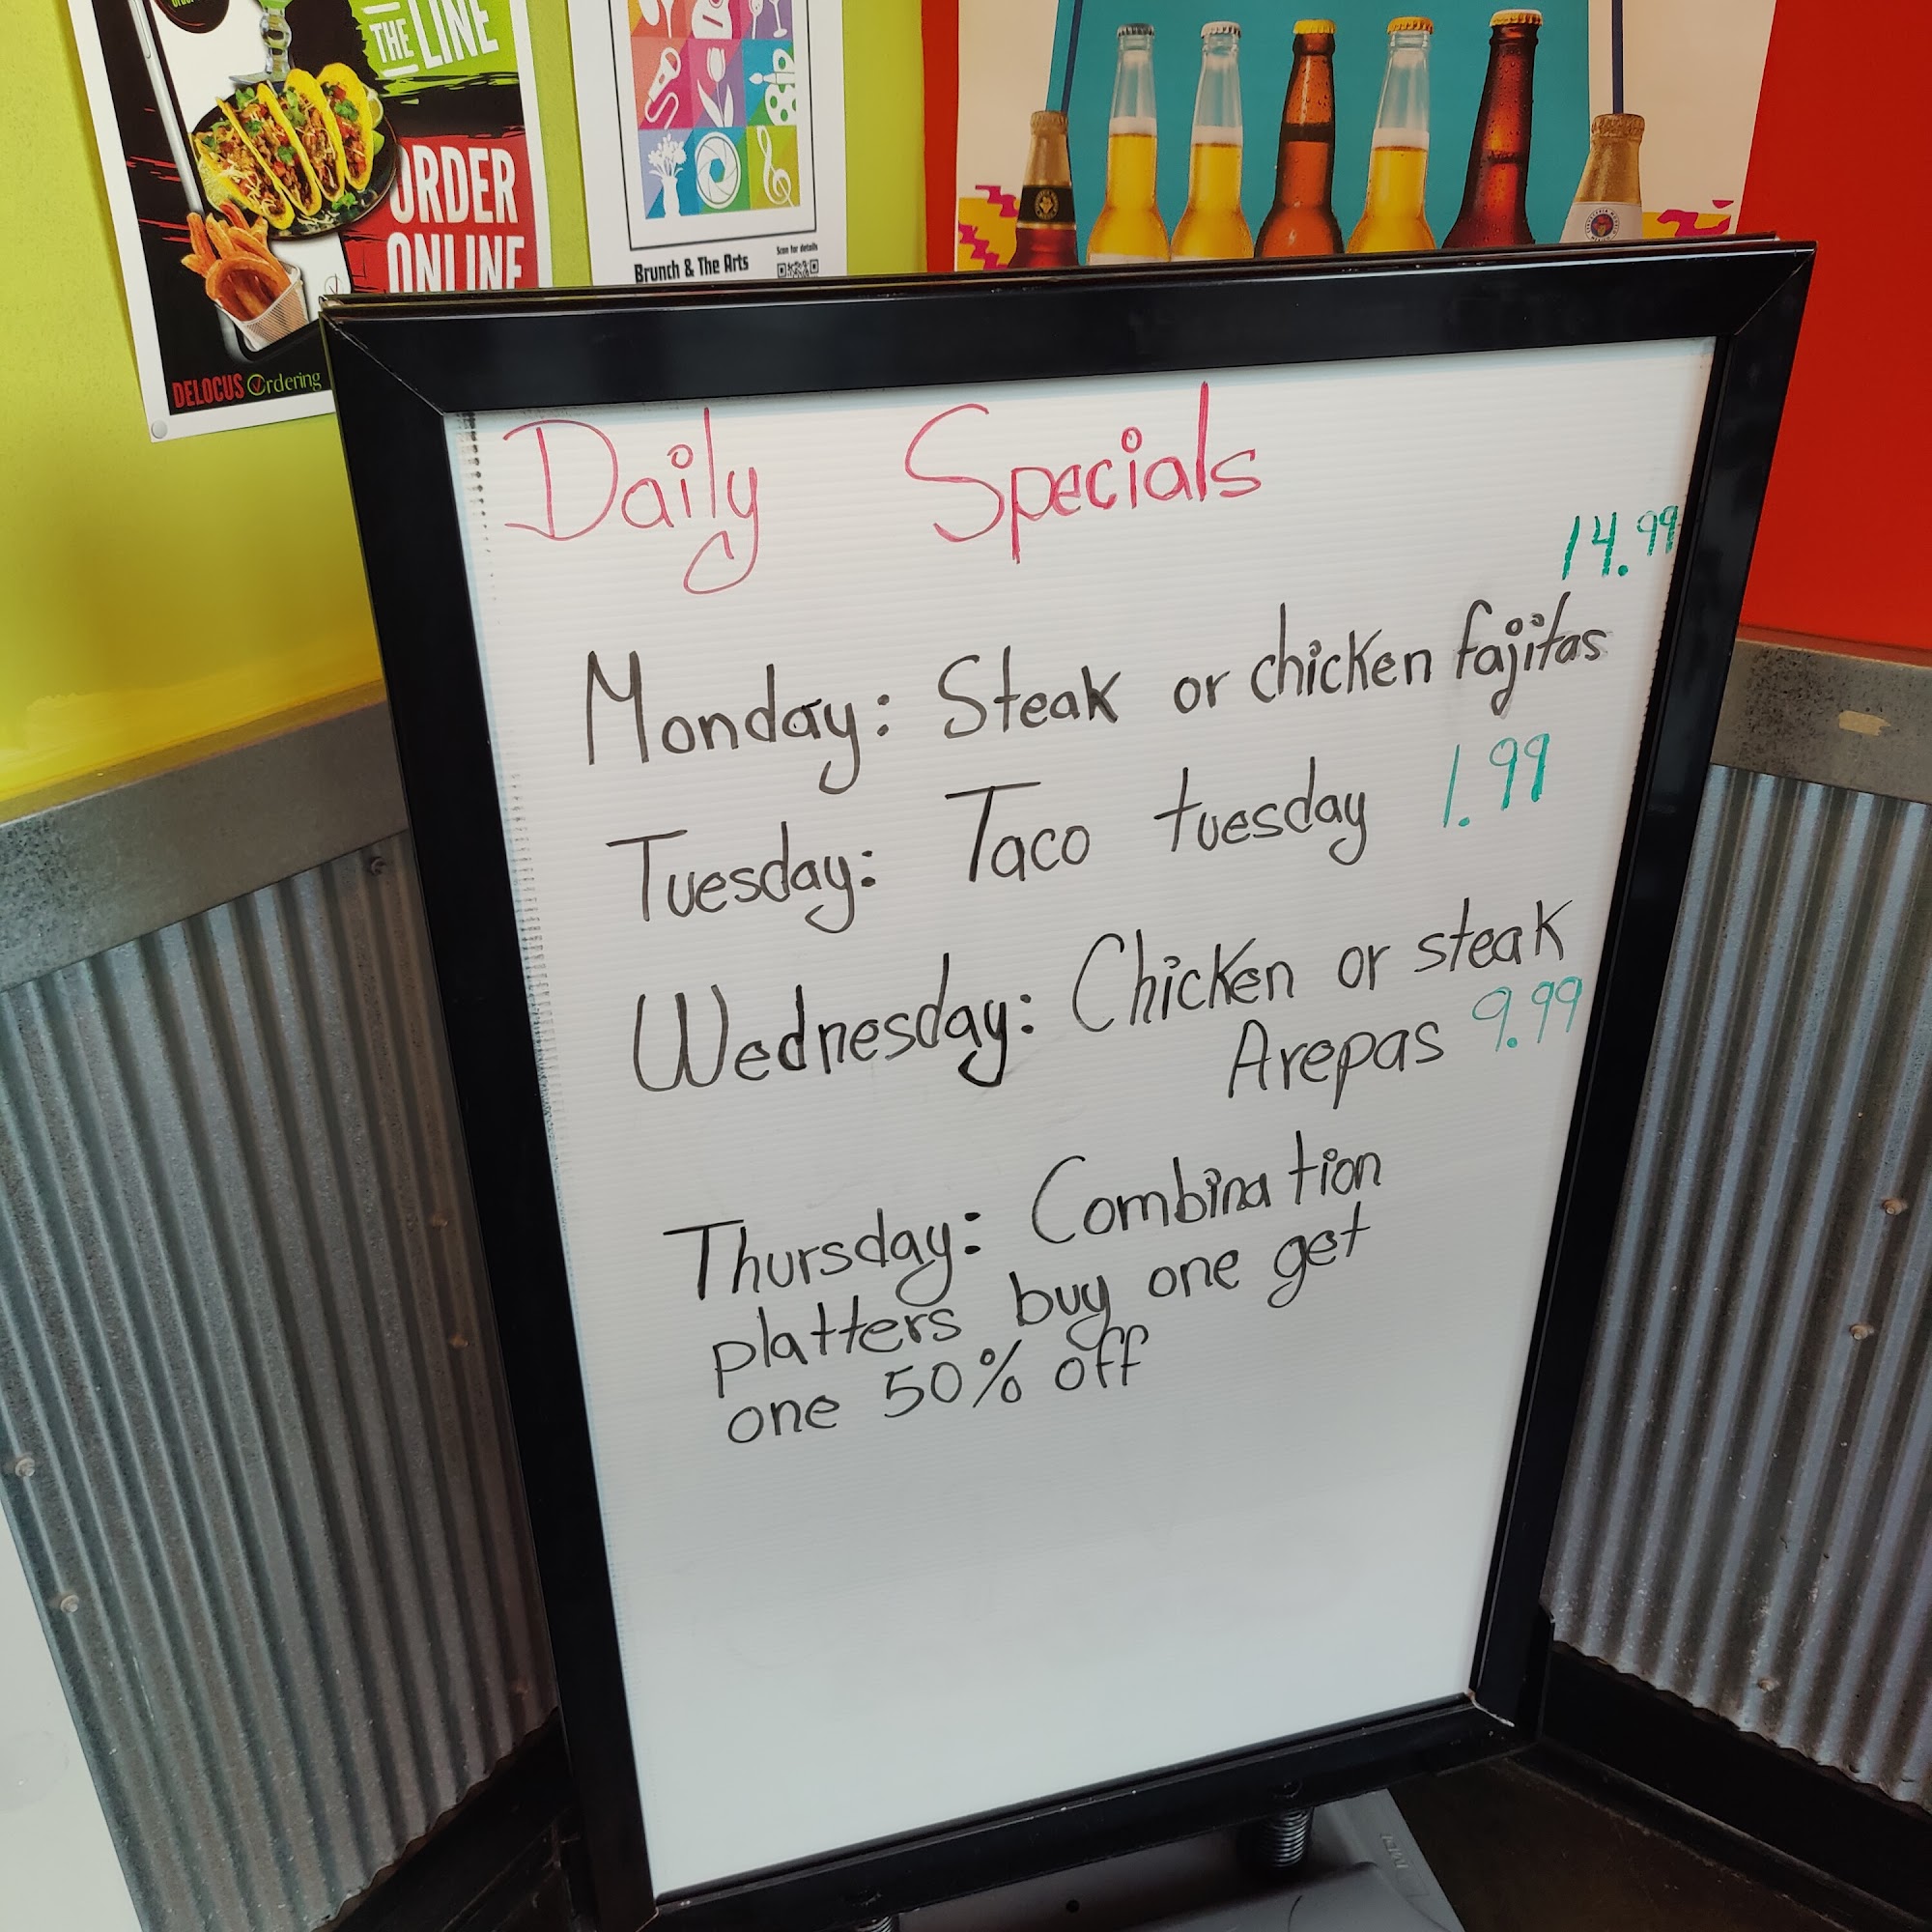 THE LINE
ORDER
ONLINE
DELOCUS Ordering
Brunch & The Arts
Scan for details
Daily Specials
14.99
Monday: Steak or chicken fajitas
Tuesday: Taco tuesday 1.99
Wednesday: Chicken or steak
Arepas 9.99
Thursday: Combination
platters buy one get
one 50% off